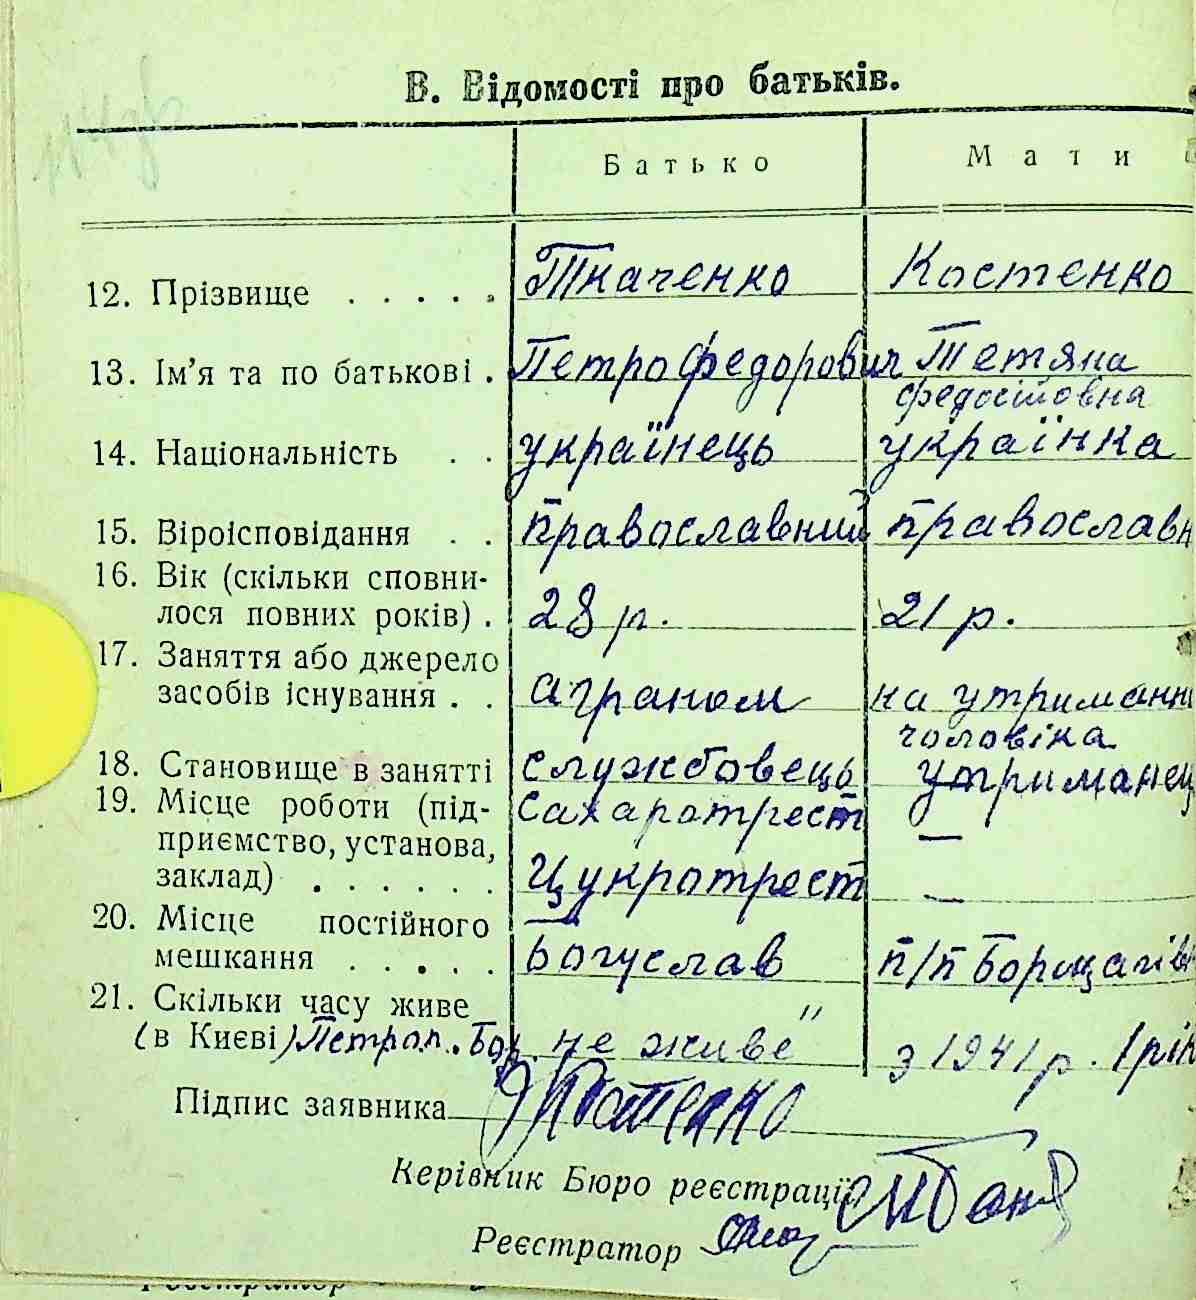 В. Відомості про батьків.
Батько Мати
12. Прізвище . . . . . Ткаченко Костенко
13. Ім’я та по батькові . Петро Федорович Тетяна
Федостовна
14. Національність . . українець українка
15. Віроісповідання . . православний православн
16. Вік (скільки сповни-
лося повних років) . 28 р. 21 р.
17. Заняття або джерело
засобів існування . . аграном на утриманні
чоловіка
18. Становище в занятті службовець утриманец
19. Місце роботи (під- Сахаротрест —
приємство, установа,
заклад) . . . . . . Цукротрест —
20. Місце постійного
мешкання . . . . . Богуслав п/п Борщагів
21. Скільки часу живе
(в Києві) Петроп. Бор. не живе" з 1941 р. 1 рік
Підпис заявника Костенко
Керівник Бюро реєстрації
Реєстратор
Реєстратор